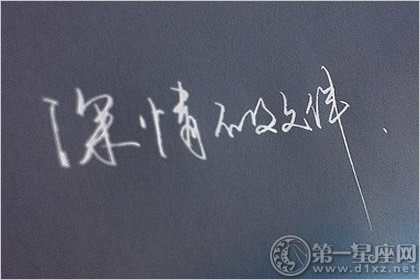 深情不及久伴.
第一星座网
www.d1xz.net